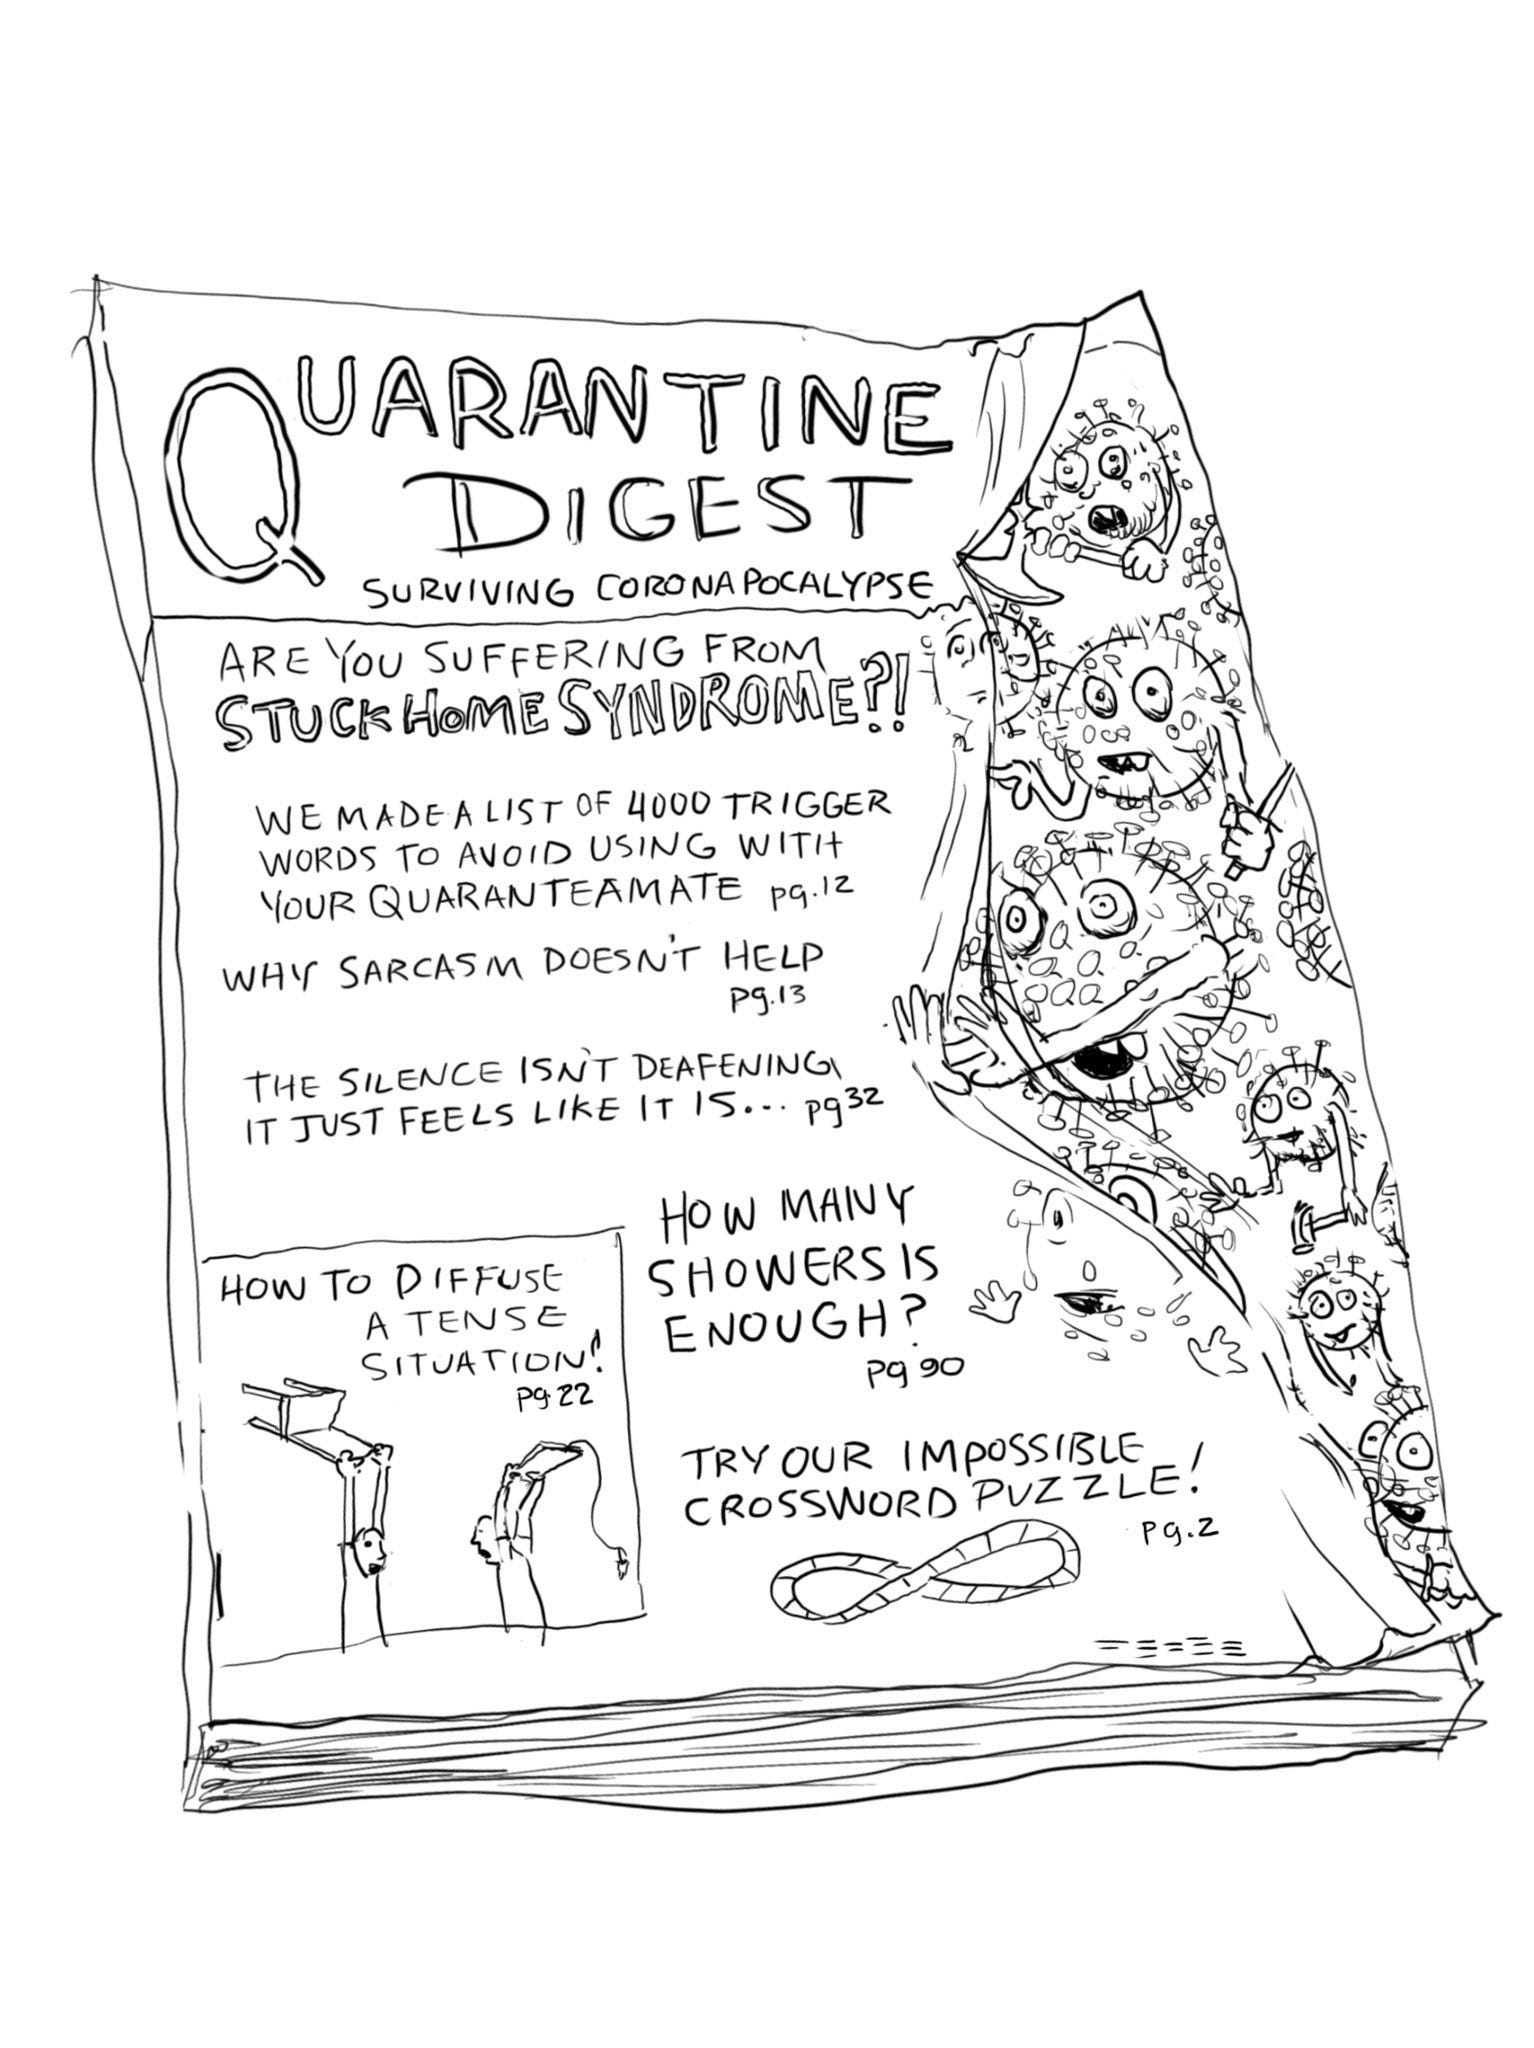 QUARANTINE
DIGEST
SURVIVING CORONAPOCALYPSE
ARE YOU SUFFERING FROM
STUCKHOMESYNDROME?!
WE MADE A LIST OF 4000 TRIGGER
WORDS TO AVOID USING WITH
YOUR QUARANTEAMATE pg.12
WHY SARCASM DOESN'T HELP
pg.13
THE SILENCE ISN'T DEAFENING,
IT JUST FEELS LIKE IT IS... pg 32
HOW TO DIFFUSE
A TENSE
SITUATION!
pg.22
HOW MANY
SHOWERS IS
ENOUGH?
pg 90
TRY OUR IMPOSSIBLE
CROSSWORD PUZZLE!
pg.2